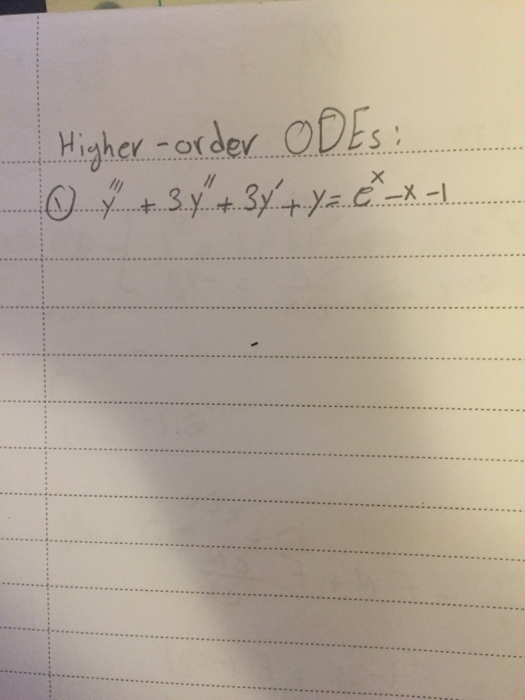 Higher-order ODEs:
① y''' + 3y'' + 3y' + y = eˣ - x - 1